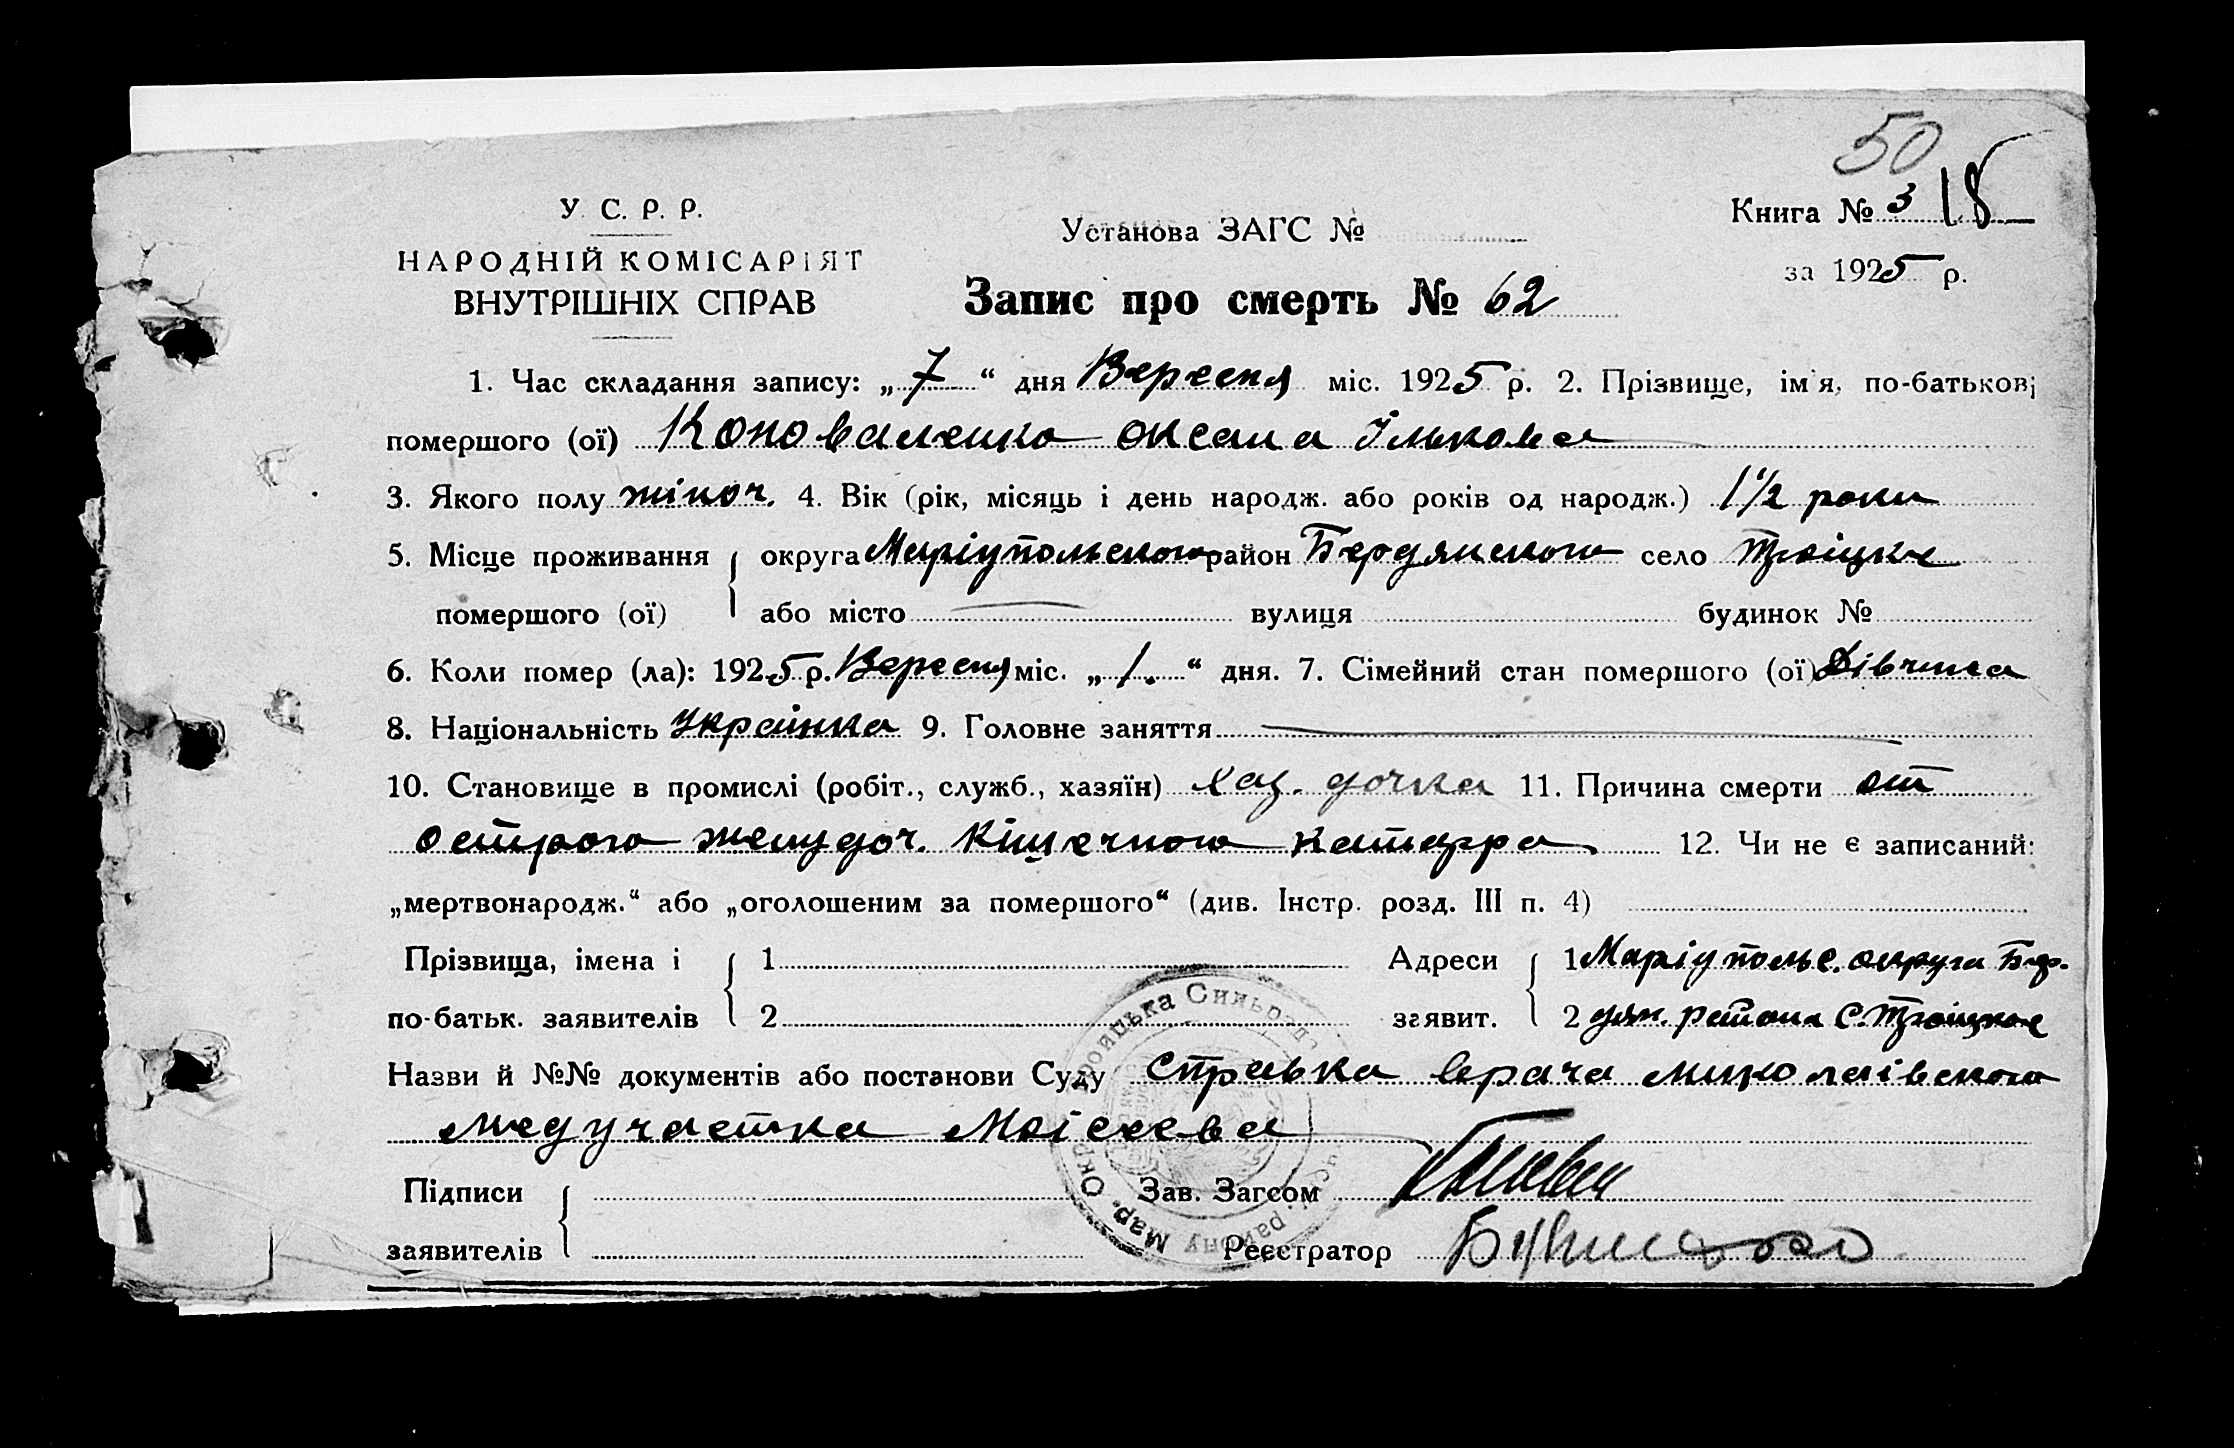 50
У. С. Р. Р.
НАРОДНІЙ КОМІСАРІЯТ
ВНУТРІШНІХ СПРАВ
Установа ЗАГС №
Книга № 3 18
за 1925 р.
Запис про смерть № 62
1. Час складання запису: „ 7 “ дня Вересня міс. 1925 р. 2. Прізвище, ім'я, по-батькові
помершого (ої) Коноваленко Оксана Ількова
3. Якого полу жіноч. 4. Вік (рік, місяць і день народж. або років од народж.) 1 1/2 роки
5. Місце проживання { округа Маріупольского район Бердянского село Троіцке
помершого (ої) або місто — вулиця будинок №
6. Коли помер (ла): 1925 р. Вересня міс. „ 1. “ дня. 7. Сімейний стан помершого (ої) Дівчина
8. Національність Українка 9. Головне заняття —
10. Становище в промислі (робіт., служб., хазяїн) Хаз. дочка 11. Причина смерти от
острого желудоч. кішечного катарра. 12. Чи не є записаний:
„мертвонародж.“ або „оголошеним за помершого“ (див. Інстр. розд. III п. 4)
Прізвища, імена і { 1 Адреси { 1 Маріупольс. округа Бер.
по-батьк. заявителів 2 заявит. 2 дян. района С. Троіцкое
Назви й №№ документів або постанови Суду Справка врача миколаівского
медучастка Моісеева
Підписи { Зав. Загсом
заявителів Реєстратор
Троицька Сильрада району Мар. Окр.